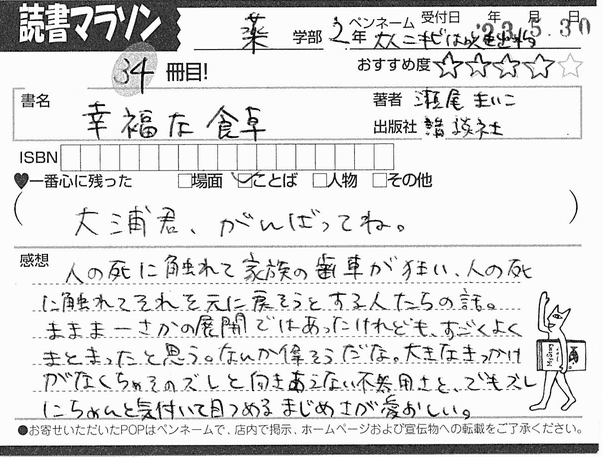 読書マラソン
薬 学部 2年 ペンネーム 受付日 年 月 日
'23.5.30
34 冊目! おすすめ度 ☆☆☆☆☆
書名 幸福な食卓
著者 瀬尾まいこ
出版社 講談社
ISBN
♥一番心に残った □場面 □ことば □人物 □その他
(大浦君、がんばってね。)
感想
人の死に触れて家族の歯車が狂い、人の死
に触れてそれを元に戻そうとする人たちの話。
まままーさかの展開ではあったけれども、すごくよく
まとまったと思う。なんか偉そうだな。大きなきっかけ
がなくちゃそのズレと向きあえない不器用さと、でもズレ
にちゃんと気付いて見つめるまじめさが愛おしい。
●お寄せいただいたPOPはペンネームで、店内で掲示、ホームページおよび宣伝物への転載をご了承ください。